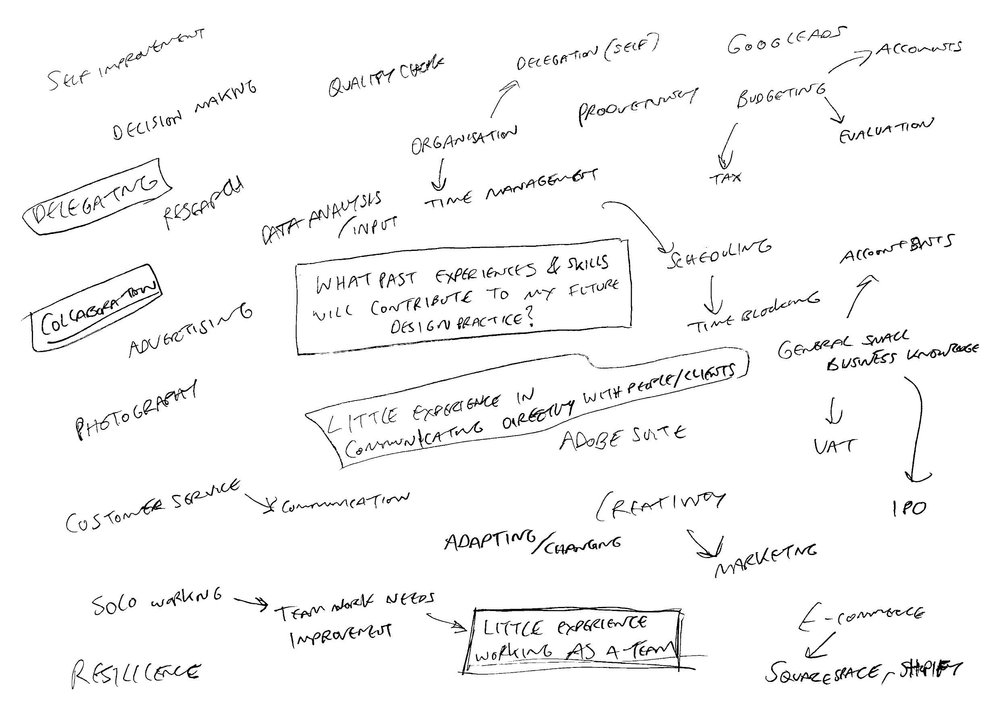 SELF IMPROVEMENT
DECISION MAKING
QUALITY CHECK
DELEGATION (SELF)
GOOGLE ADS
ACCOUNTS
ORGANISATION
PRODUCTIVITY
BUDGETING
EVALUATION
TAX
DELEGATING
RESEARCH
DATA ANALYSIS
/INPUT
TIME MANAGEMENT
SCHEDULING
TIME BLOCKING
COLLABORATION
ADVERTISING
WHAT PAST EXPERIENCES & SKILLS
WILL CONTRIBUTE TO MY FUTURE
DESIGN PRACTICE?
ACCOUNTANTS
GENERAL SMALL
BUSINESS KNOWLEDGE
VAT
IPO
PHOTOGRAPHY
LITTLE EXPERIENCE IN
COMMUNICATING DIRECTLY WITH PEOPLE/CLIENTS
ADOBE SUITE
CUSTOMER SERVICE
COMMUNICATION
ADAPTING/CHANGING
CREATIVITY
MARKETING
SOLO WORKING
TEAM WORK NEEDS
IMPROVEMENT
LITTLE EXPERIENCE
WORKING AS A TEAM
E-COMMERCE
SQUARESPACE, SHOPIFY
RESILIENCE